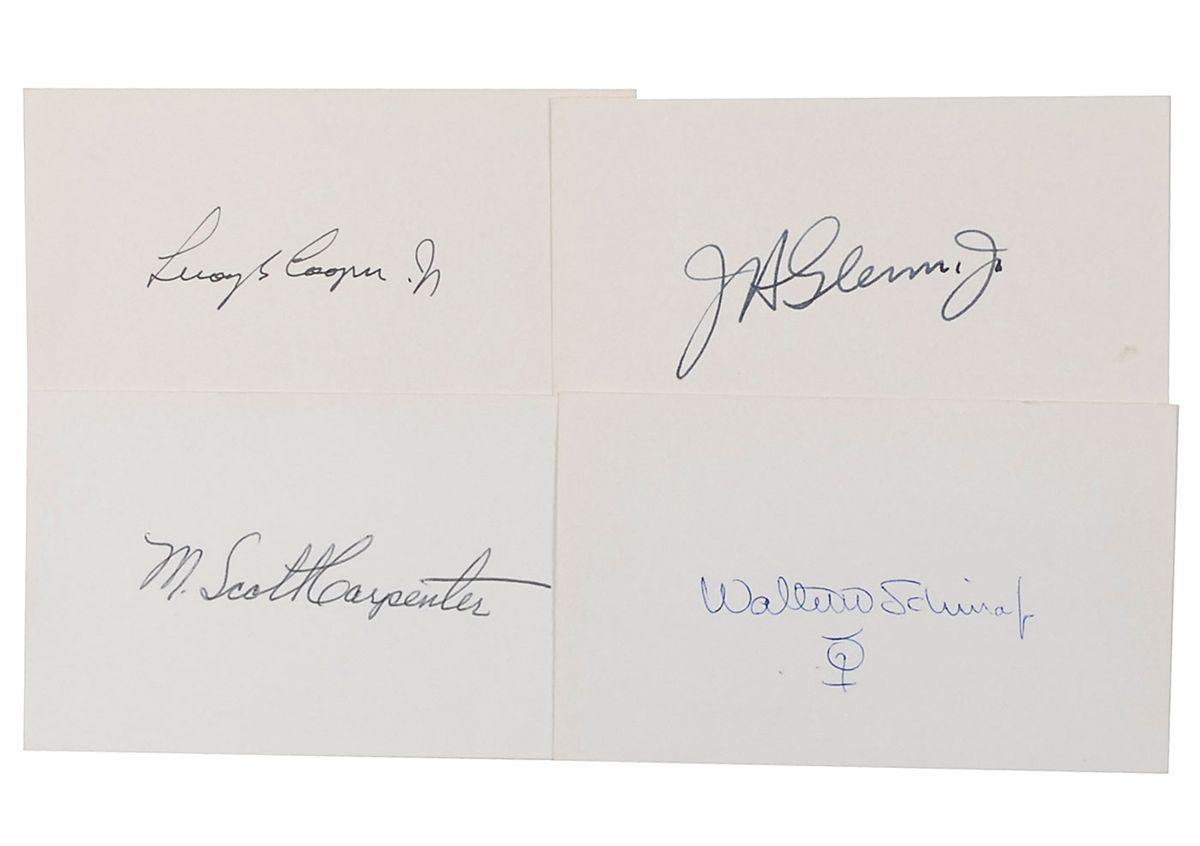 Leroy G Cooper Jr
J H Glenn Jr.
M. Scott Carpenter
Walter M Schirra Jr